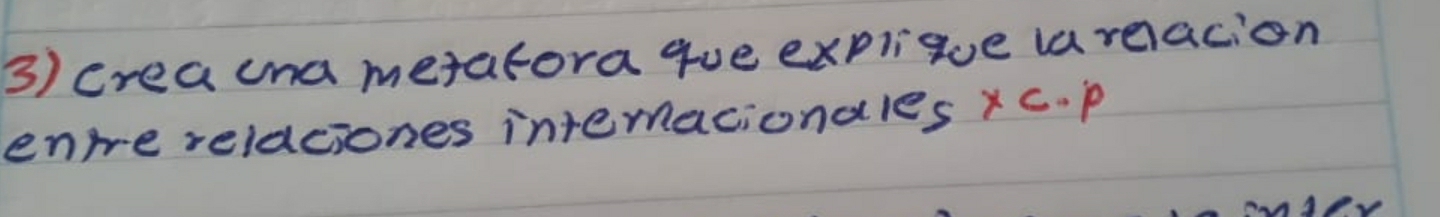 3) crea una metafora que explique la relacion
entre relaciones internacionales x c.p
inter